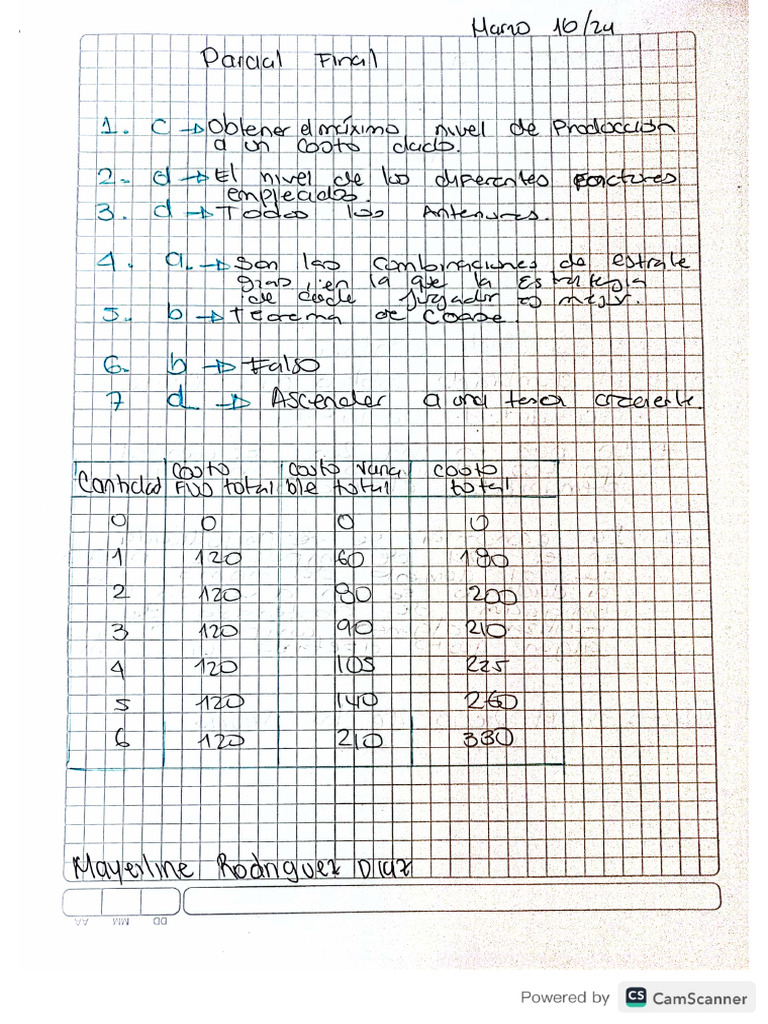 Marzo 16/24
Parcial Final
1. c → Obtener el máximo nivel de Producción
a un costo dado.
2- d → El nivel de los diferentes factores
empleados.
3. d → Todos los Anteriores.
4. a. → Son las combinaciones de estrate
gias, en la que la Estrategia
de cada jugador es mejor.
5. b → Teorema de Coase.
6. b → Falso
7 d → Ascender a una tasa creciente.
Cantidad Costo Fijo total Costo varia ble total Costo total
0 0 0 0
1 120 60 180
2 120 80 200
3 120 90 210
4 120 105 225
5 120 140 260
6 120 210 330
Mayerline Rodriguez Diaz
AA MM DD
Powered by CS CamScanner